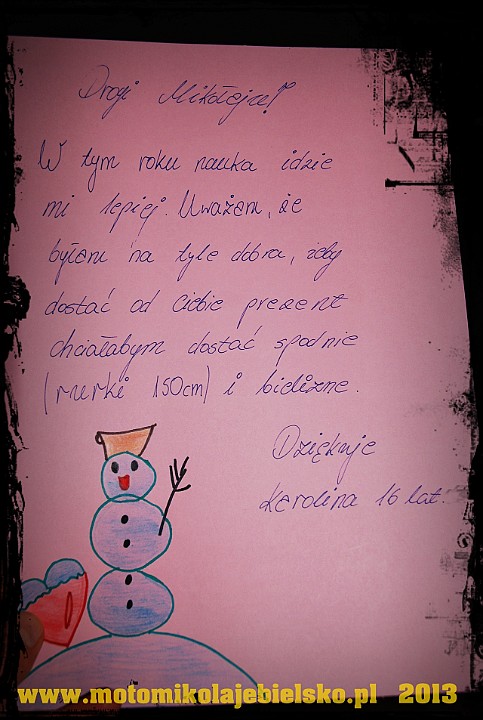 Drogi Mikołaju!
W tym roku nauka idzie
mi lepiej. Uważam, że
byłam na tyle dobra, żeby
dostać od Ciebie prezent
chciałabym dostać spodnie
(rurki 150cm) i bieliznę.
Dziękuję
Karolina 16 lat.
www.motomikolajebielsko.pl 2013